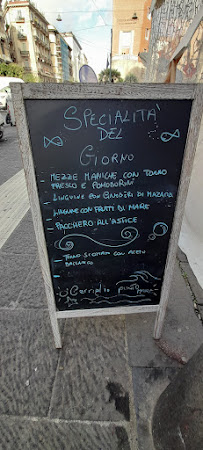 SPECIALITA'
DEL
GIORNO
- MEZZE MANICHE CON TONNO
FRESCO E POMODORINI
- LINGUINE CON GAMBERI DI MAZARA
- LINGUINE CON FRUTTI DI MARE
- PACCHERO ALL'ASTICE
- TONNO SCOTTATO CON ACETO
BALSAMICO